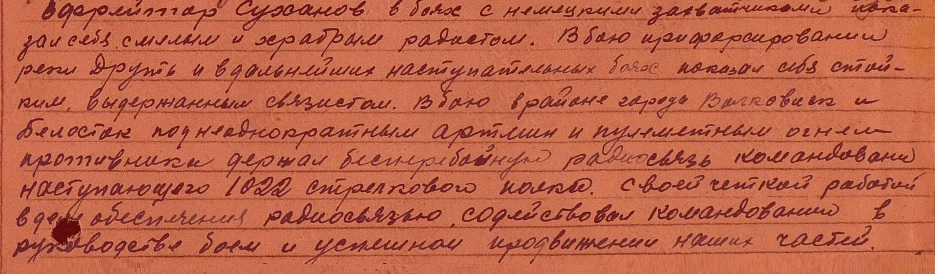 Ефрейтор Суханов в боях с немецкими захватчиками пока-
зал себя смелым и храбрым радистом. В бою при форсировании
реки Друть и в дальнейших наступательных боях показал себя стой-
ким, выдержанным связистом. В бою в районе города Волковыск и
Белосток под неоднократным артмин и пулеметным огнем
противника держал бесперебойную радиосвязь командовани
наступающего 1022 стрелкового полка. Своей четкой работой
в деле обеспечения радиосвязью, содействовал командования в
руководстве боем и успешном продвижении наших частей.